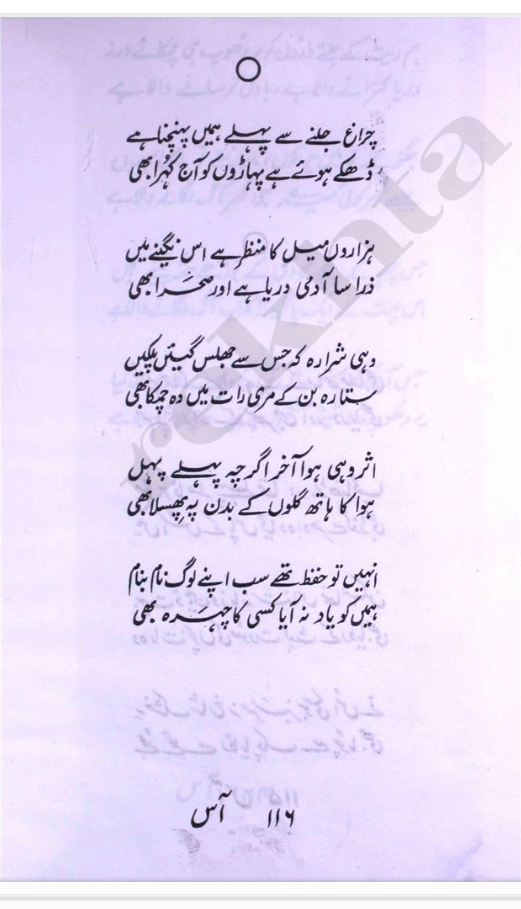 چراغ جلنے سے پہلے ہمیں پہنچنا ہے
ڈھکے ہوئے ہے پہاڑوں کو آج کہُرا بھی
ہزاروں میل کا منظر ہے اس نگینے میں
ذرا سا آدمی دریا ہے اور صحرا بھی
وہی شرارہ کہ جس سے جھلس گئیں پلکیں
ستارہ بن کے مری رات میں وہ چمکا بھی
اثر وہی ہوا آخر اگرچہ پہلے پہل
ہوا کا ہاتھ گلوں کے بدن پہ پھسلا بھی
انہیں تو حفظ تھے سب اپنے لوگ نام بنام
ہمیں کو یاد نہ آیا کسی کا چہرہ بھی
۱۱۶ آس
rekhta